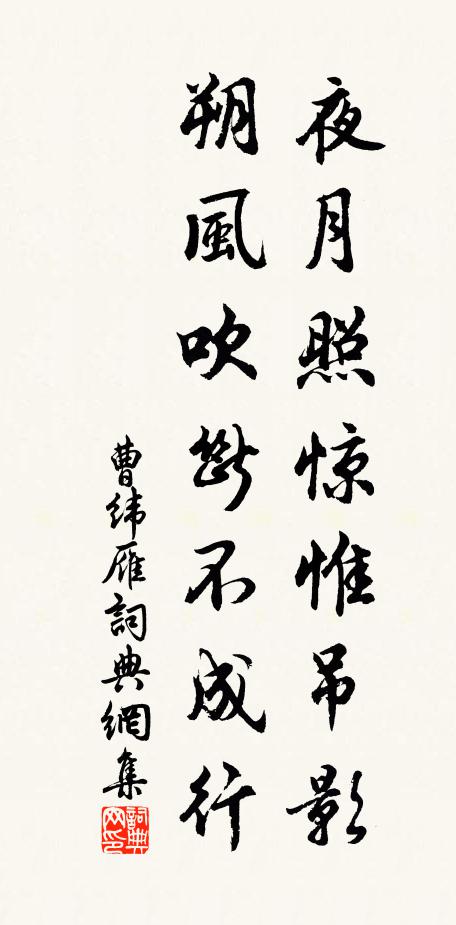 夜月照惊惟吊影
朔風吹斷不成行
曹緯雁詞典網集
詞典网印